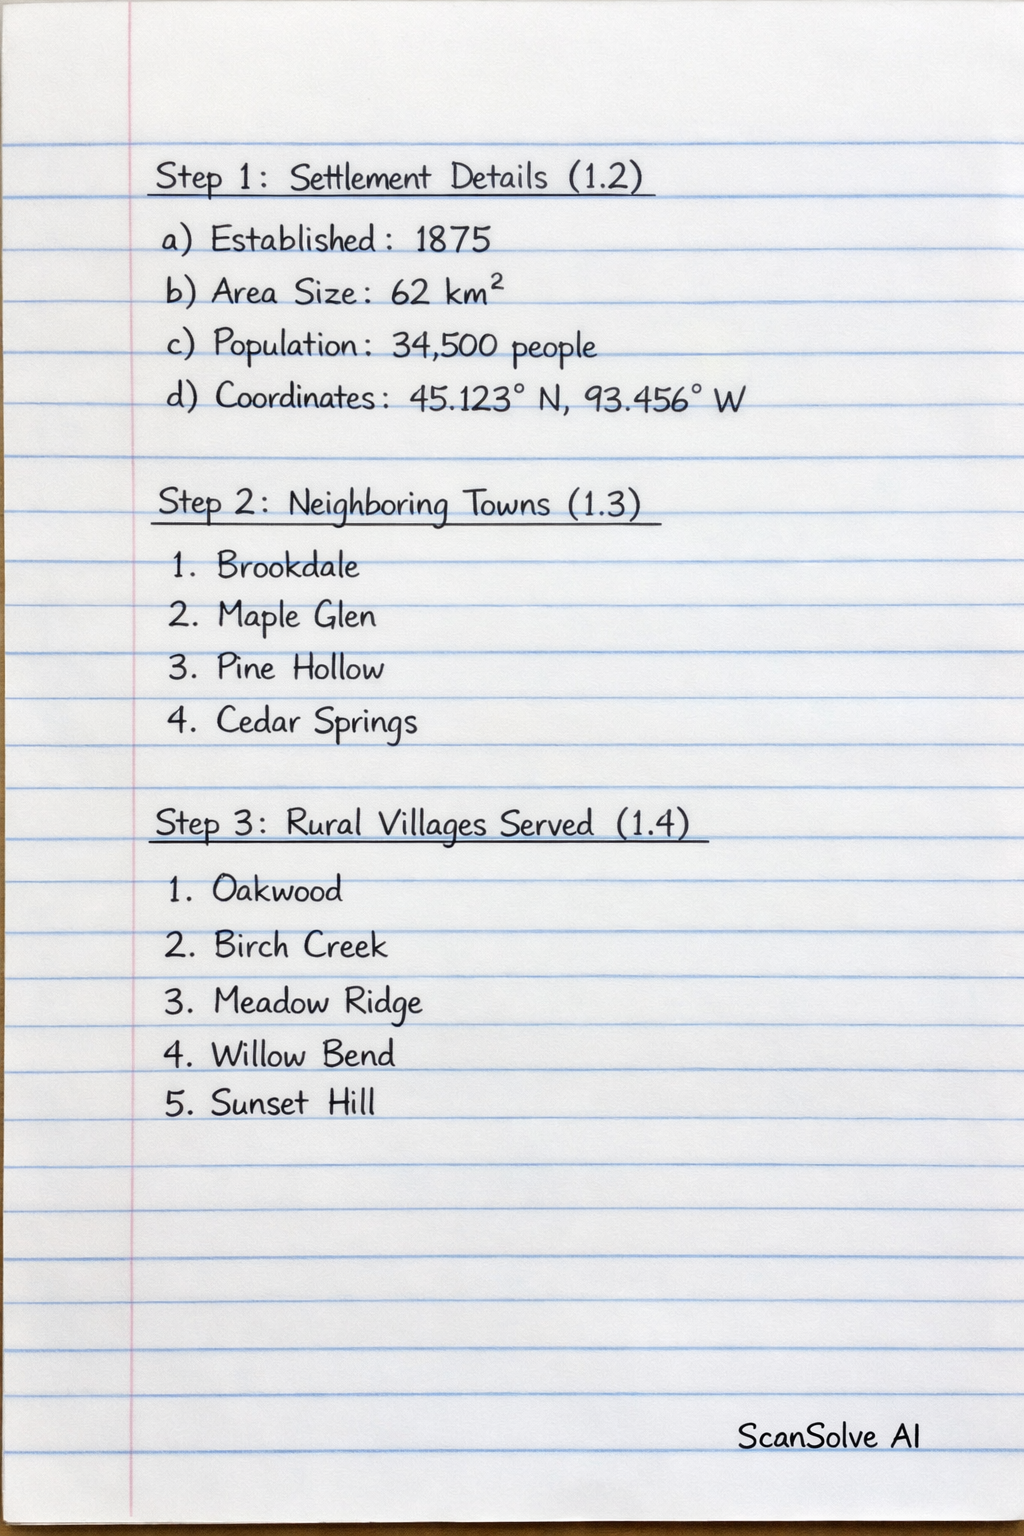 Step 1: Settlement Details (1.2)
a) Established: 1875
b) Area Size: 62 km²
c) Population: 34,500 people
d) Coordinates: 45.123° N, 93.456° W
Step 2: Neighboring Towns (1.3)
1. Brookdale
2. Maple Glen
3. Pine Hollow
4. Cedar Springs
Step 3: Rural Villages Served (1.4)
1. Oakwood
2. Birch Creek
3. Meadow Ridge
4. Willow Bend
5. Sunset Hill
ScanSolve AI